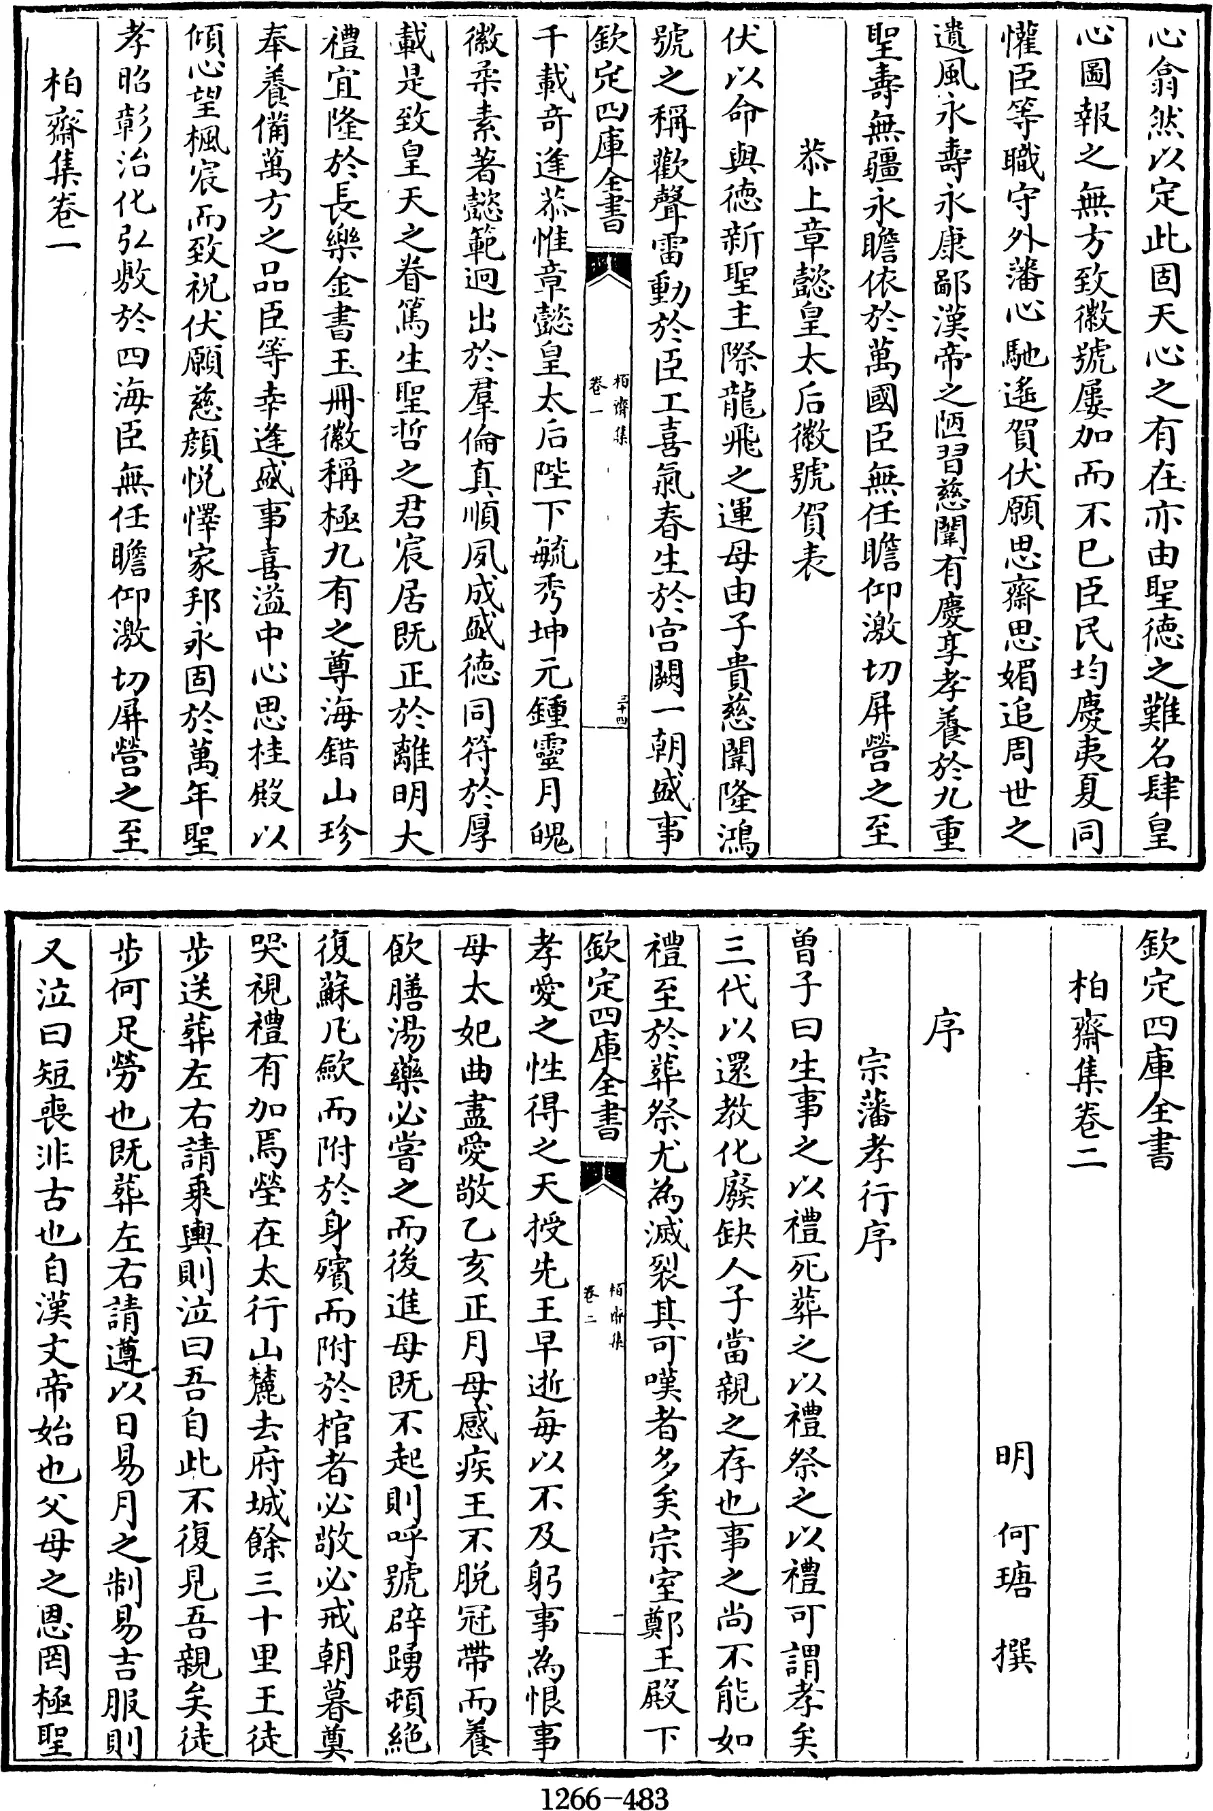 心翕然以定此固天心之有在亦由聖德之難名肆皇
心圖報之無方致徽號屢加而不已臣民均慶夷夏同
懽臣等職守外藩心馳遙賀伏願思齋思媚追周世之
遺風永壽永康鄙漢帝之陋習慈闈有慶享孝養於九重
聖壽無疆永瞻依於萬國臣無任瞻仰激切屏營之至
恭上章懿皇太后徽號賀表
伏以命與德新聖主際龍飛之運母由子貴慈闈隆鴻
號之稱歡聲雷動於臣工喜氣春生於宫闕一朝盛事
欽定四庫全書
柏齋集
卷一
三十四
千載奇逢恭惟章懿皇太后陛下毓秀坤元鍾靈月魄
徽柔素著懿範迥出於羣倫真順夙成盛德同符於厚
載是致皇天之眷篤生聖哲之君宸居既正於離明大
禮宜隆於長樂金書玉冊徽稱極九有之尊海錯山珍
奉養備萬方之品臣等幸逢盛事喜溢中心思桂殿以
傾心望楓宸而致祝伏願慈顔悅懌家邦永固於萬年聖
孝昭彰治化弘敷於四海臣無任瞻仰激切屏營之至
柏齋集卷一
欽定四庫全書
柏齋集卷二
明 何瑭 撰
序
宗藩孝行序
曾子曰生事之以禮死葬之以禮祭之以禮可謂孝矣
三代以還教化廢缺人子當親之存也事之尚不能如
禮至於葬祭尤為滅裂其可嘆者多矣宗室鄭王殿下
欽定四庫全書
栢齋集
卷二
一
孝愛之性得之天授先王早逝每以不及躬事為恨事
母太妃曲盡愛敬乙亥正月母感疾王不脱冠帶而養
飲膳湯藥必嘗之而後進母既不起則呼號辟踴頓絶
復蘇凡歛而附於身殯而附於棺者必敬必戒朝暮奠
哭視禮有加焉塋在太行山麓去府城餘三十里王徒
步送葬左右請乘輿則泣曰吾自此不復見吾親矣徒
步何足勞也既葬左右請遵以日易月之制易吉服則
又泣曰短喪非古也自漢文帝始也父母之恩罔極聖
1266-483